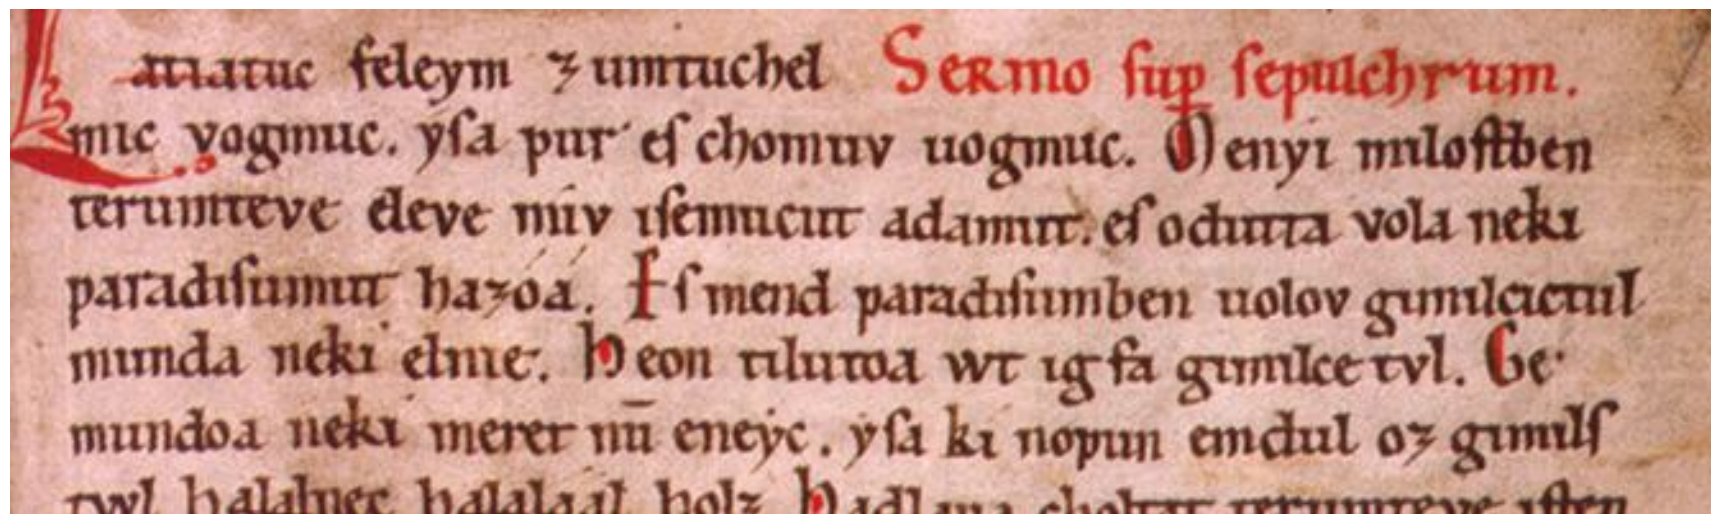 Latiatuc feleym zumtuchel Sermo sup sepulchrum.
mic vogmuc. ysa pur es chomuv uogmuc. Menyi milostben
terumteve eleve miv isemucut adamut. es odutta vola neki
paradisumut hazóá. Es mend paradisumben uolov gimilcictul
munda neki elnie. Heon tilutoa wt ig fa gimilce tvl. Ge
mundoa neki meret nū eneyc. ysa ki nopun emdul oz gimils
twl halalnec halalaal holz. Hadlaua choltat terumteve isten